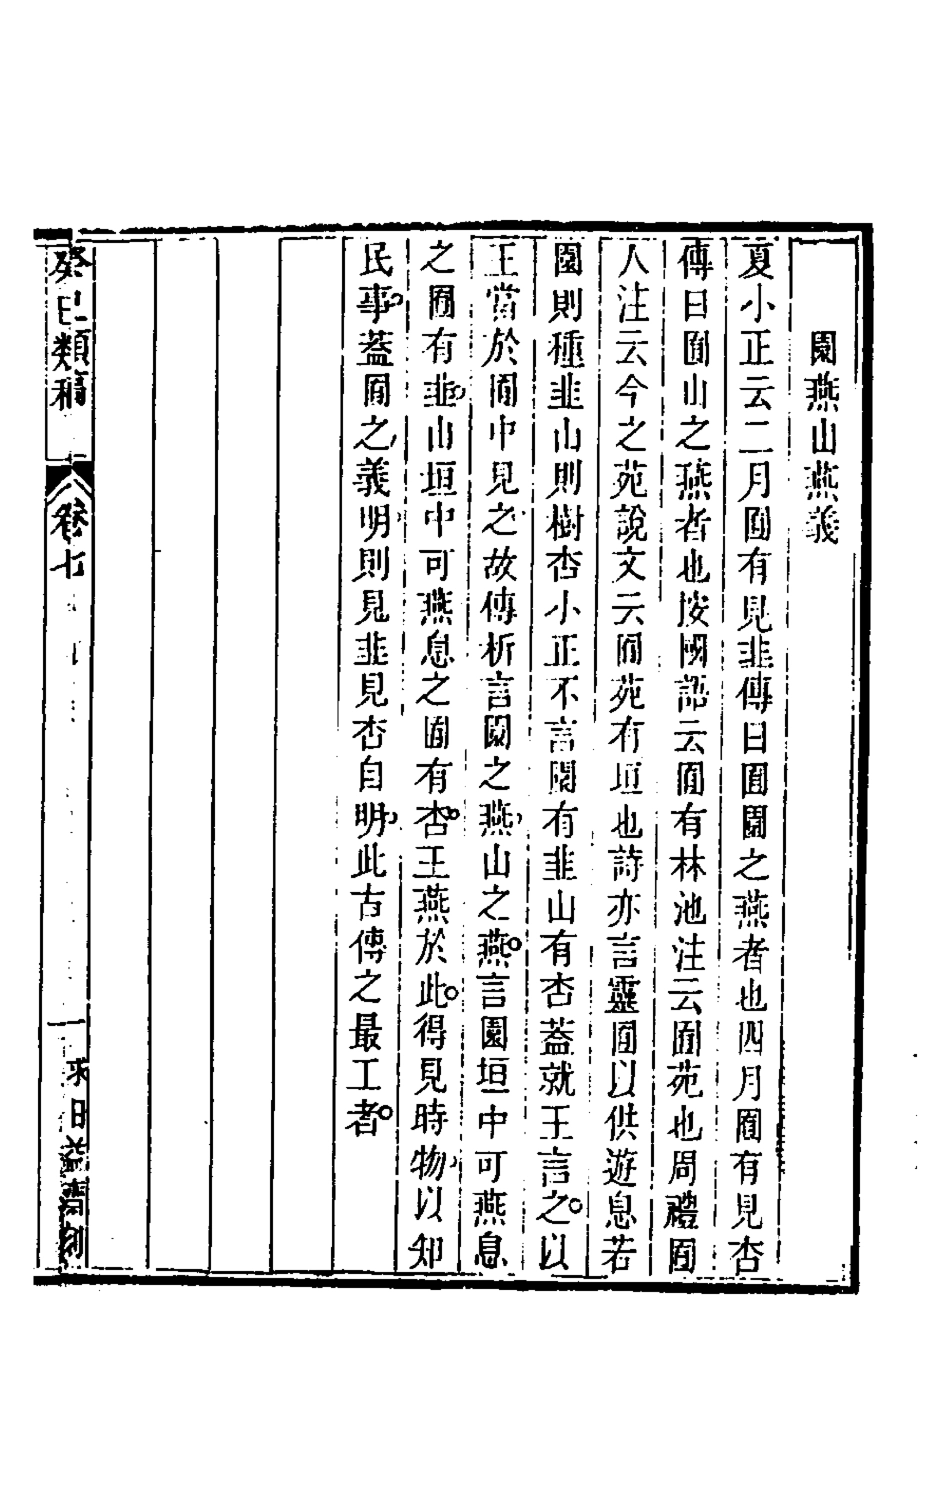 園燕山燕義
夏小正云二月囿有見韭傳曰囿園之燕者也四月囿有見杏
傳曰囿山之燕者也按國語云囿有林池注云囿苑也周禮囿
人注云今之苑說文云囿苑有垣也詩亦言靈囿以供遊息若
園則種韭山則樹杏小正不言園有韭山有杏蓋就王言之。以
王當於囿中見之故傳析言園之燕、山之燕。言園垣中可燕息
之囿有韭、山垣中可燕息之囿有杏。王燕於此。得見時物、以知
民事。蓋囿之義明、則見韭見杏自明、此古傳之最工者。
癸巳類稿 卷七 一 求日益齋刻